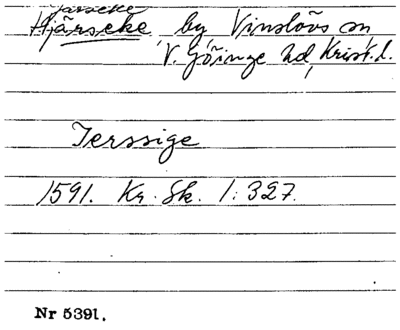 Järseke
Hjärseke, by Vinslövs sn
V. Göinge hd, Krist. l.
Jerssige
1591. Kr. Sk. 1:327.
Nr 5391.